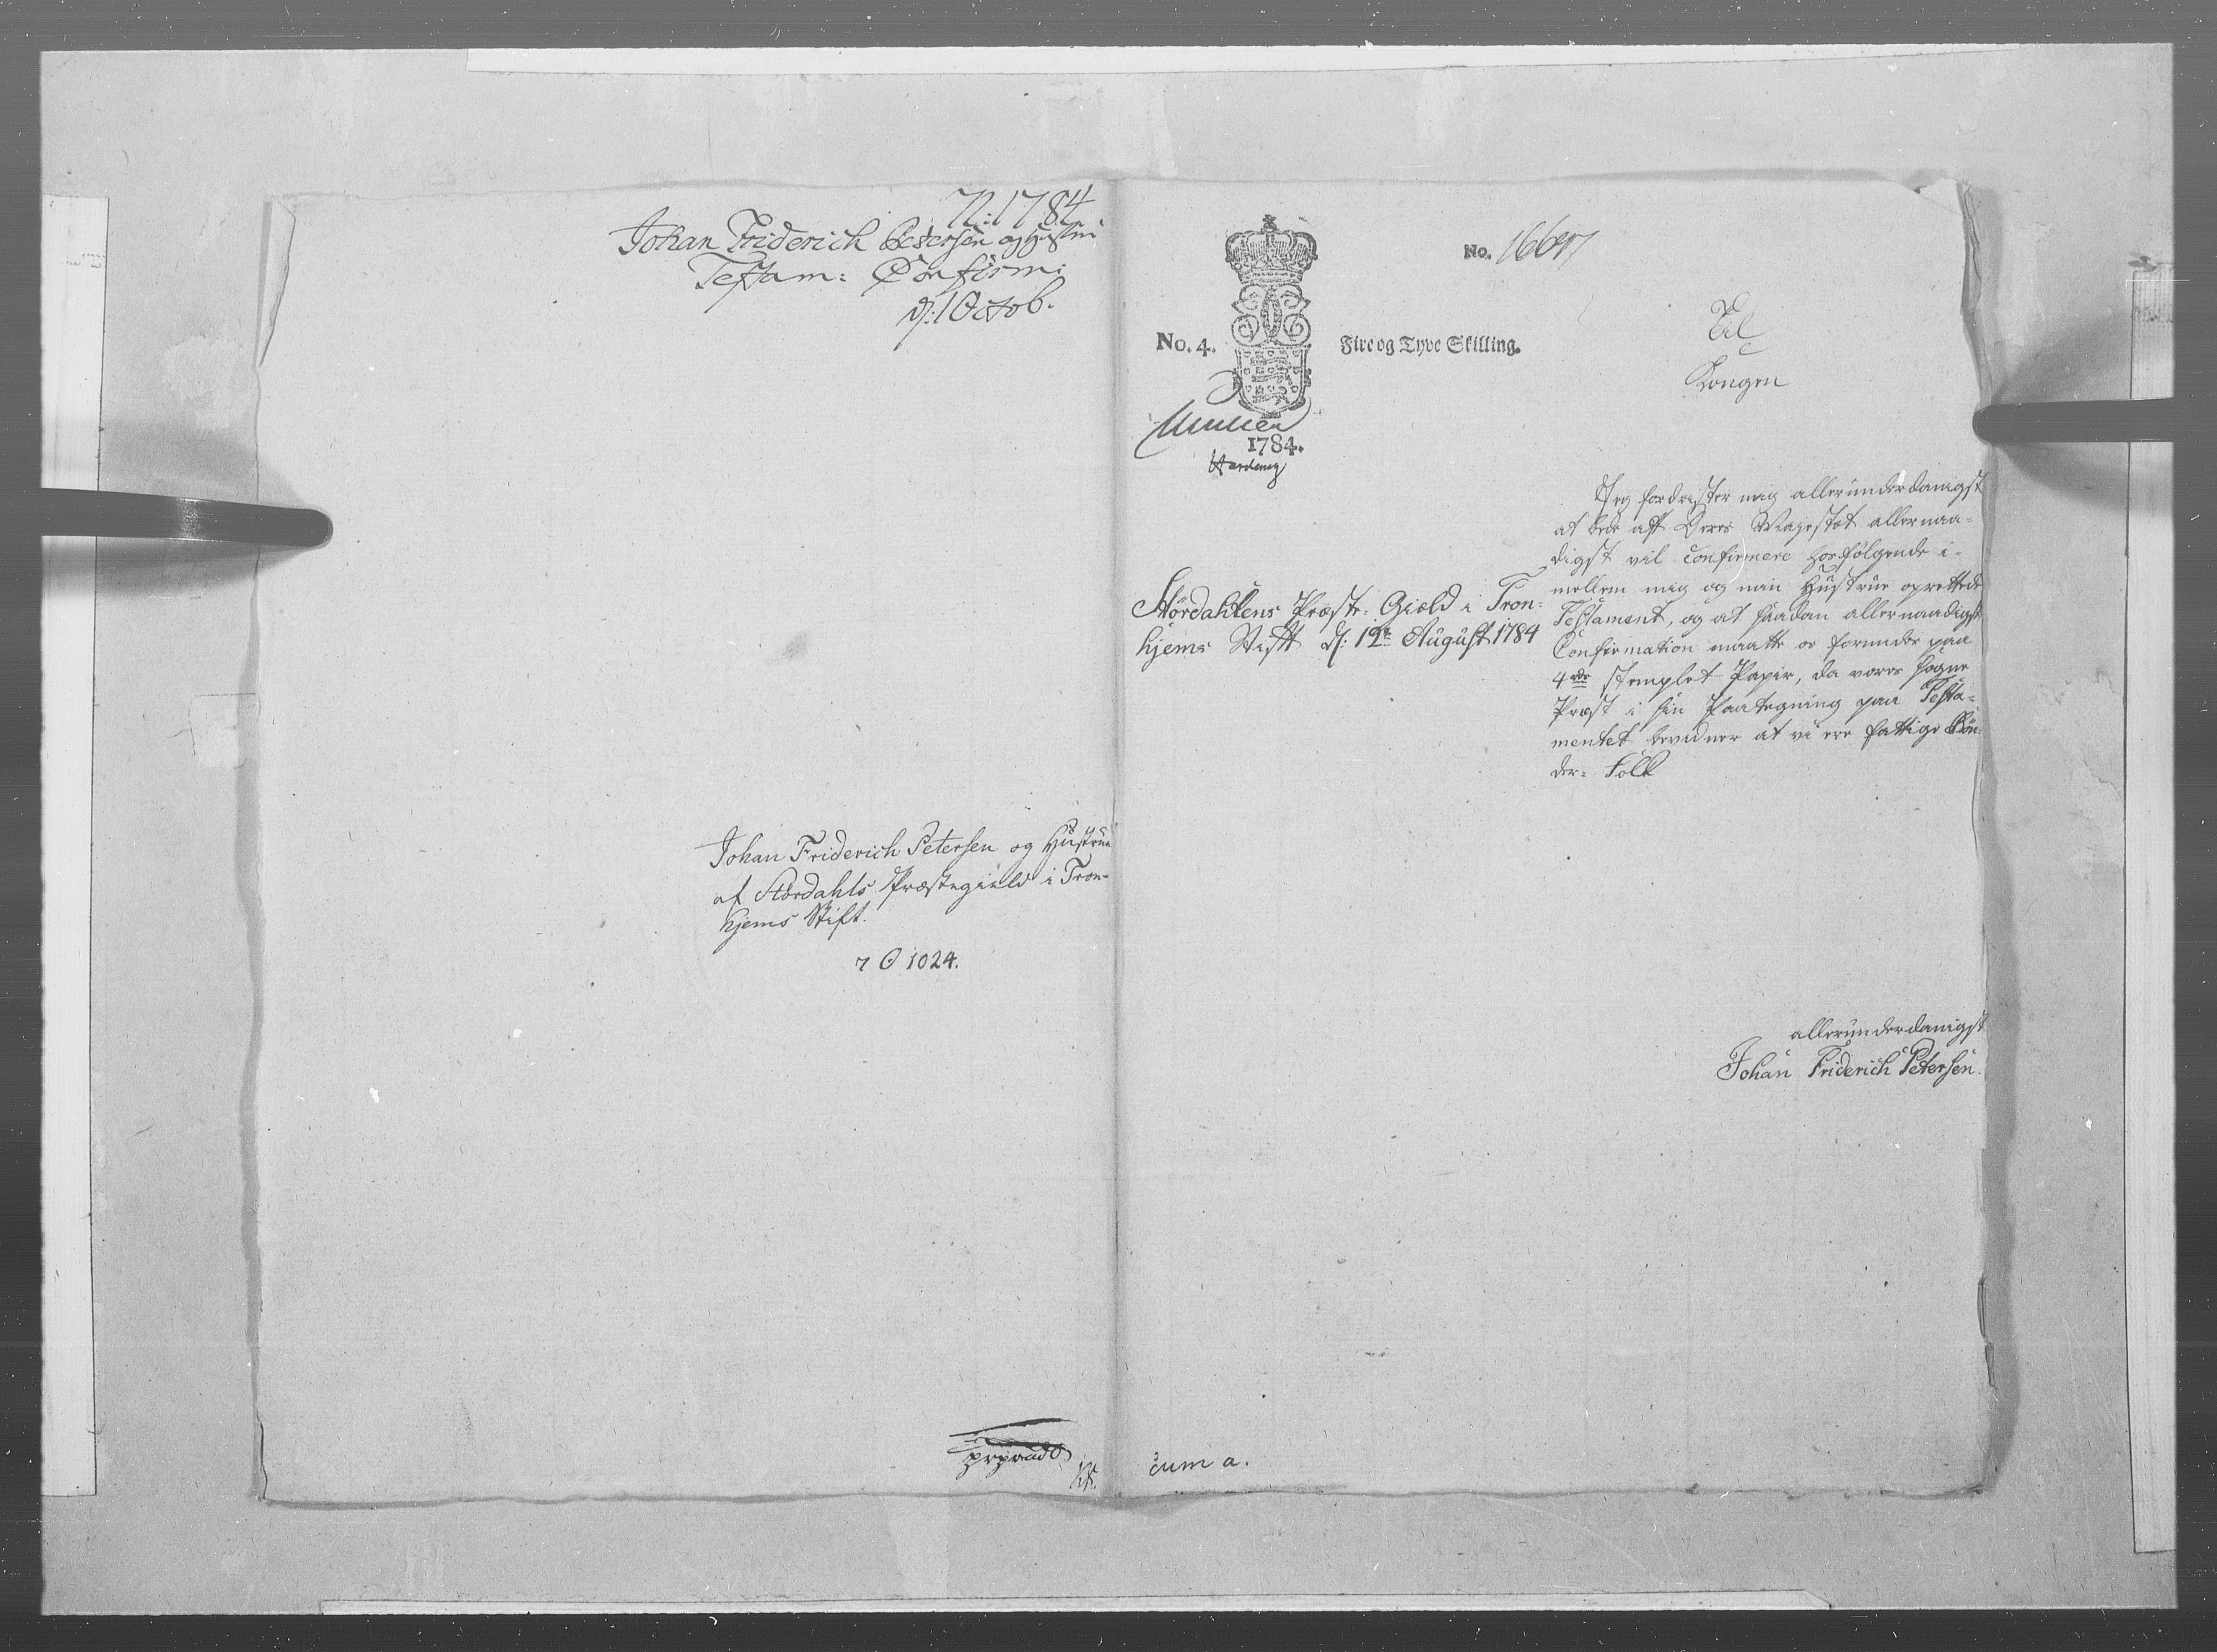 N: 1784
Johan Friderich Petersen og Hustru
Testam: Confirm:
d: 1 Octob.
Johan Friderich Petersen og Hustrue
af Stördahls Præstegield i Tron-
hjems Stift.
7 O 1024.
No. 4.
Fire og Tyve Skilling.
1784.
No.
Til
Kongen
Stördahlens Præste-Giæld i Tron-
hjems Stift d: 12te August 1784
Jeg fordrister mig allerunderdanigst
at bede att Deres Majestæt allernaa-
digst vil confirmere hosfølgende i-
mellem mig og min Hustrue oprettede
Testament, og at saadan allernaadigst
Confirmation maatte os forundes paa
4rde stemplet Papir, da vores Sogne
Præst i sin Paategning paa Testa-
mentet bevidner at vi ere fattige Bön-
der-Folk
allerunderdanigst
Johan Friderich Petersen.
cum a.